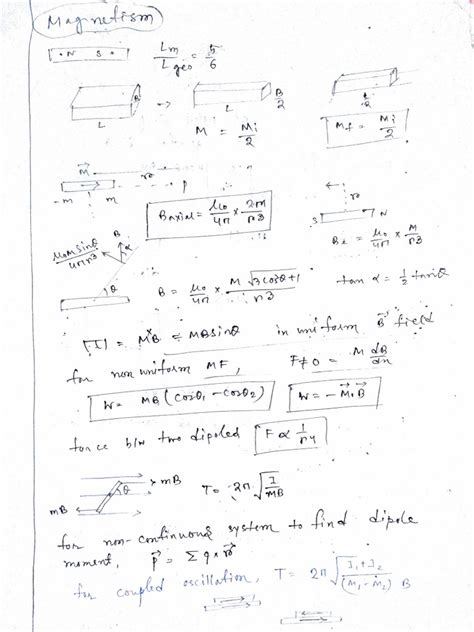 Magnetism
N S
Lm / Lgeo = 5/6
B B/2
L L
M = Mi/2
Mf = Mi/2
M r
-m m P
Baxial = μ0/4π × 2M/r3
r
S N
B⊥ = μ0/4π × M/r3
μ0 M sinθ / 4πr3
B α
θ
B = μ0/4π × M √3cos²θ+1 / r3
tan α = 1/2 tanθ
|τ| = M×B = MBsinθ in uniform B field
for non uniform MF, F≠0 = M dB/dx
W = MB (cosθ1 - cosθ2) W = -M.B
force b/w two dipoled F ∝ 1/r4
mB mB θ
T = 2π √I/MB
for non-continuous system to find dipole
moment, P = Σ q × r
for coupled oscillation, T = 2π √I1+I2/(M1-M2) B